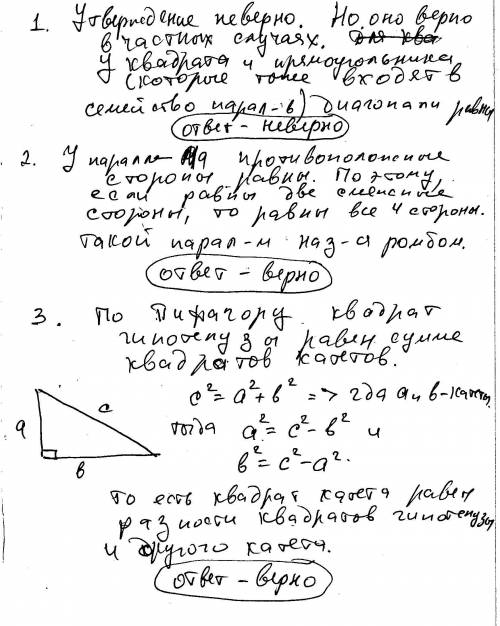 1. Утверждение неверно. Но оно верно
в частных случаях. для ква
У квадрата и прямоугольника
(которые тоже входят в
семейство парал-в) диагонали равны
ответ - неверно
2. У паралл-ма противоположные
стороны равны. Поэтому,
если равны две смежные
стороны, то равны все 4 стороны.
Такой парал-м наз-ся ромбом.
ответ - верно
3. По Пифагору квадрат
гипотенузы равен сумме
квадратов катетов.
c² = a² + b² => где a и b - катеты
тогда a² = c² - b² и
b² = c² - a².
a
c
b
То есть квадрат катета равен
разности квадратов гипотенузы
и другого катета.
ответ - верно